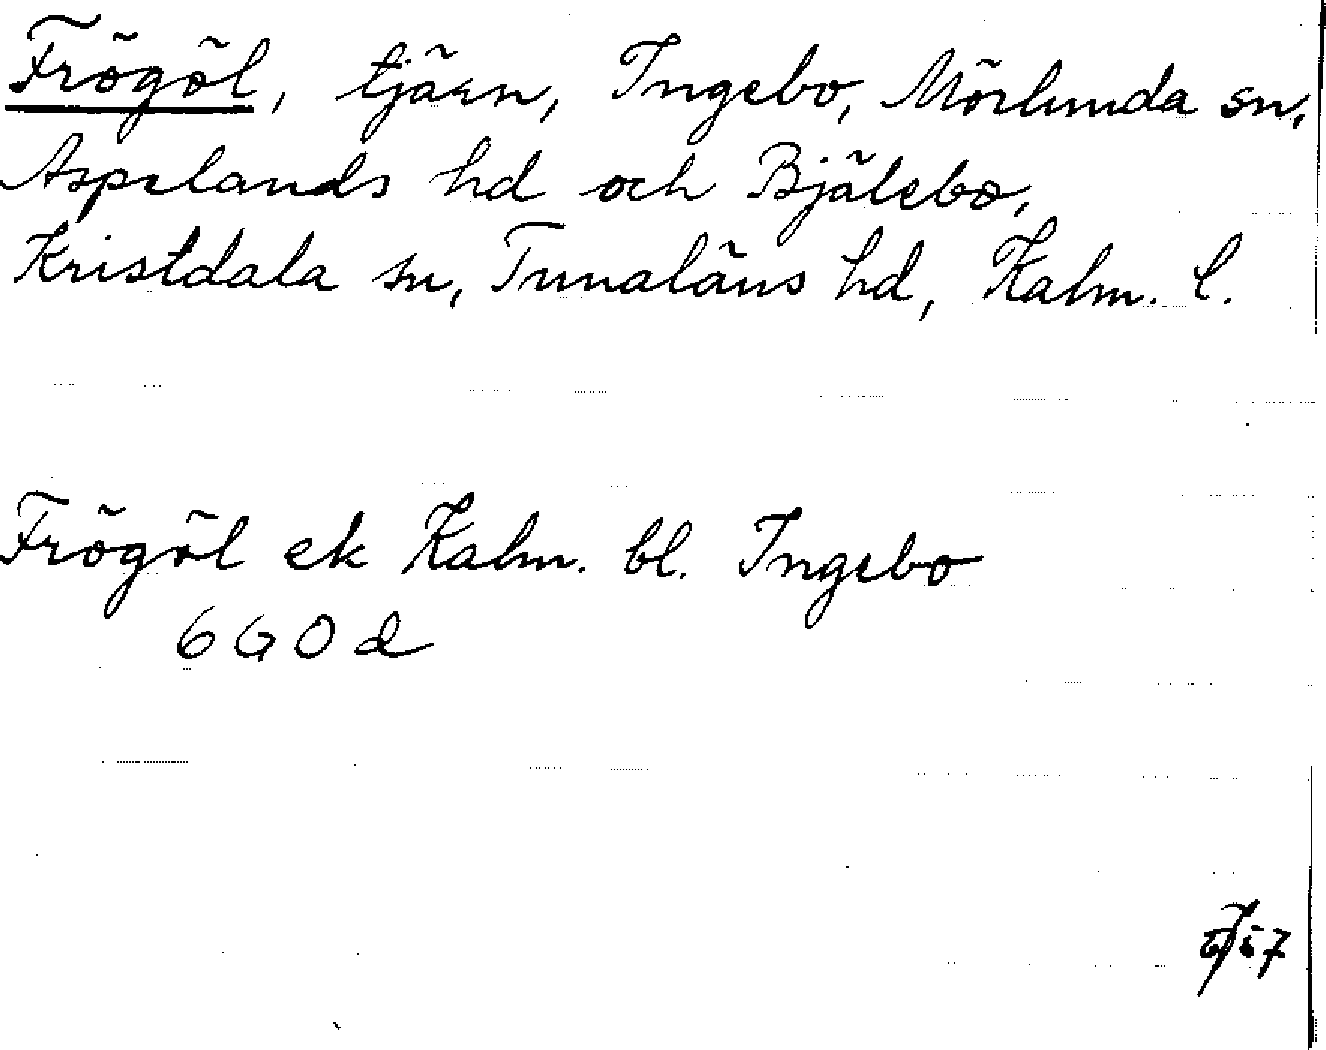 Frögöl, tjärn, Ingebo, Mörlunda sn,
Aspelands hd och Bjälebo,
Kristdala sn, Tunaläns hd, Kalm. l.
Frögöl ek Kalm. bl. Ingebo
6 G 0 d